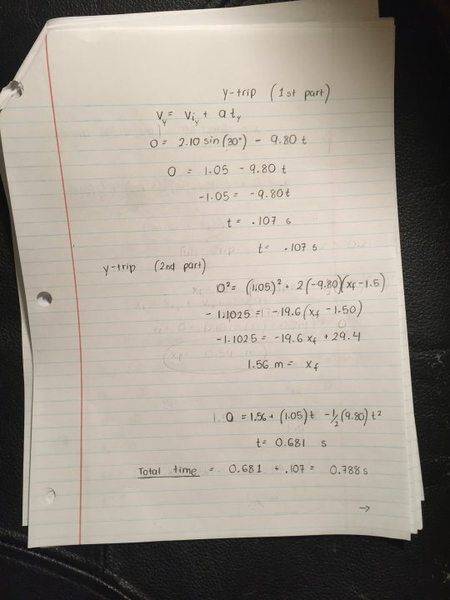 y-trip (1st part)
Vy = Viy + aty
0 = 2.10 sin(30°) - 9.80 t
0 = 1.05 - 9.80 t
-1.05 = -9.80t
t = .107 s
t = .107 s
y-trip (2nd part)
0² = (1.05)² + 2(-9.80)(xf - 1.5)
-1.1025 = -19.6(xf - 1.50)
-1.1025 = -19.6 xf + 29.4
1.56 m = xf
0 = 1.56 + (1.05)t - ½(9.80)t²
t = 0.681 s
Total time = 0.681 + .107 = 0.788 s
→